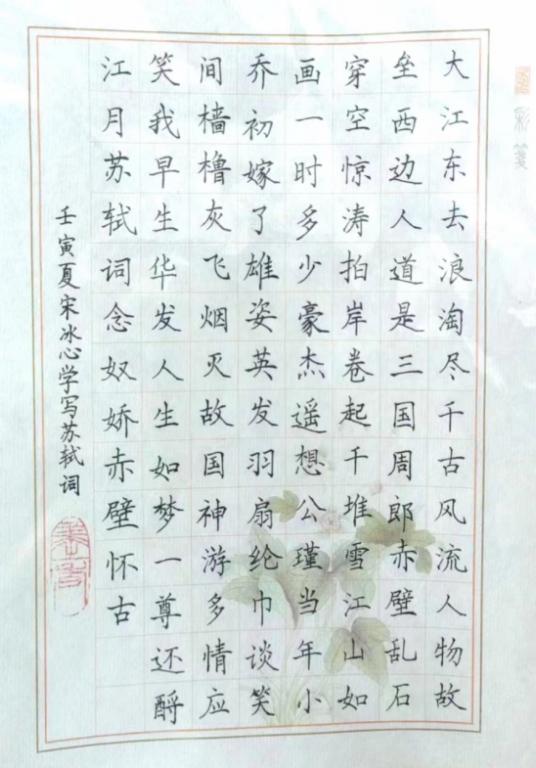 大江东去浪淘尽千古风流人物故
垒西边人道是三国周郎赤壁乱石
穿空惊涛拍岸卷起千堆雪江山如
画一时多少豪杰遥想公瑾当年小
乔初嫁了雄姿英发羽扇纶巾谈笑
间樯橹灰飞烟灭故国神游多情应
笑我早生华发人生如梦一尊还酹
江月苏轼词念奴娇赤壁怀古
壬寅夏宋冰心学写苏轼词
彩笺